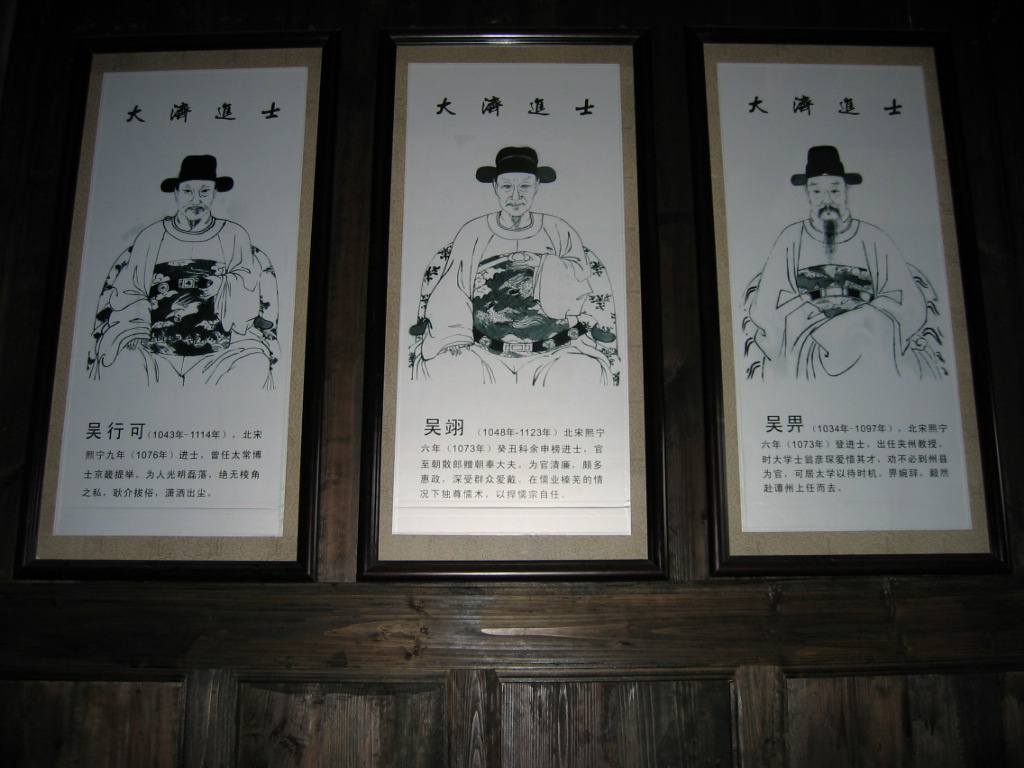 大濟進士
吴行可(1043年-1114年)，北宋
熙宁九年(1076年)进士，曾任太常博
士宗畿提举，为人光明磊落，绝无棱角
之私，耿介拔俗，潇洒出尘。
大濟進士
吴翊 (1048年-1123年)北宋熙宁
六年(1073年)癸丑科余申榜进士，官
至朝散郎赠朝奉大夫，为官清廉，颇多
惠政，深受群众爱戴。在儒业榛芜的情
况下独尊儒术，以捍儒宗自任。
大濟進士
吴畀 (1034年-1097年)，北宋熙宁
六年(1073年)登进士，出任夹州教授，
时大学士翁彦琛爱惜其才，劝不必到州县
为官，可居太学以待时机，畀婉辞，毅然
赴谭州上任而去。